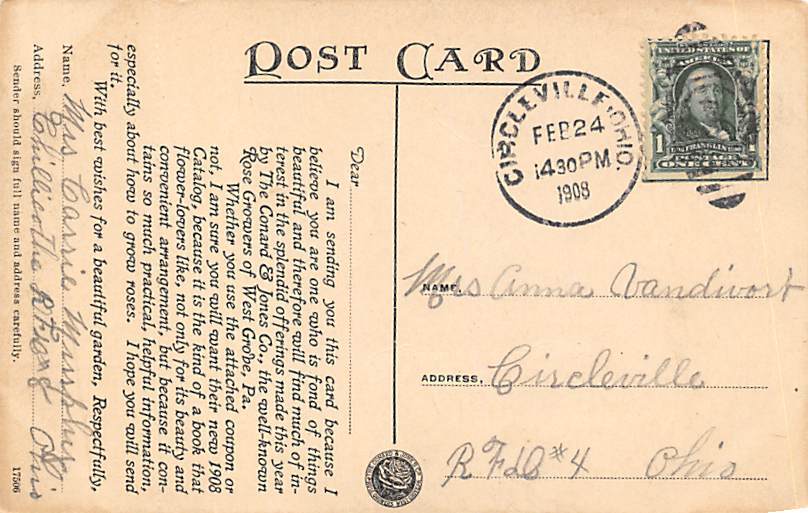 POST CARD
CIRCLEVILLE, OHIO.
FEB 24
430 PM
1908
UNITED STATES OF
AMERICA
1 FRANKLIN 1
POSTAGE
ONE CENT
Dear
I am sending you this card because I
believe you are one who is fond of things
beautiful and therefore will find much of in-
terest in the splendid offerings made this year
by The Conard & Jones Co., the well-known
Rose Growers of West Grobe, Pa.
Whether you use the attached coupon or
not, I am sure you will want their new 1908
Catalog, because it is the kind of a book that
flower-lovers like, not only for its beauty and
convenient arrangement, but because it con-
tains so much practical, helpful information,
especially about how to grow roses. I hope you will send
for it.
With best wishes for a beautiful garden, Respectfully,
Name, Mrs Carrie
Address, Chillicothe Ohio
Sender should sign full name and address carefully.
17506
NAME, Mrs Anna Vandivort
ADDRESS, Circleville
RFD #4 Ohio